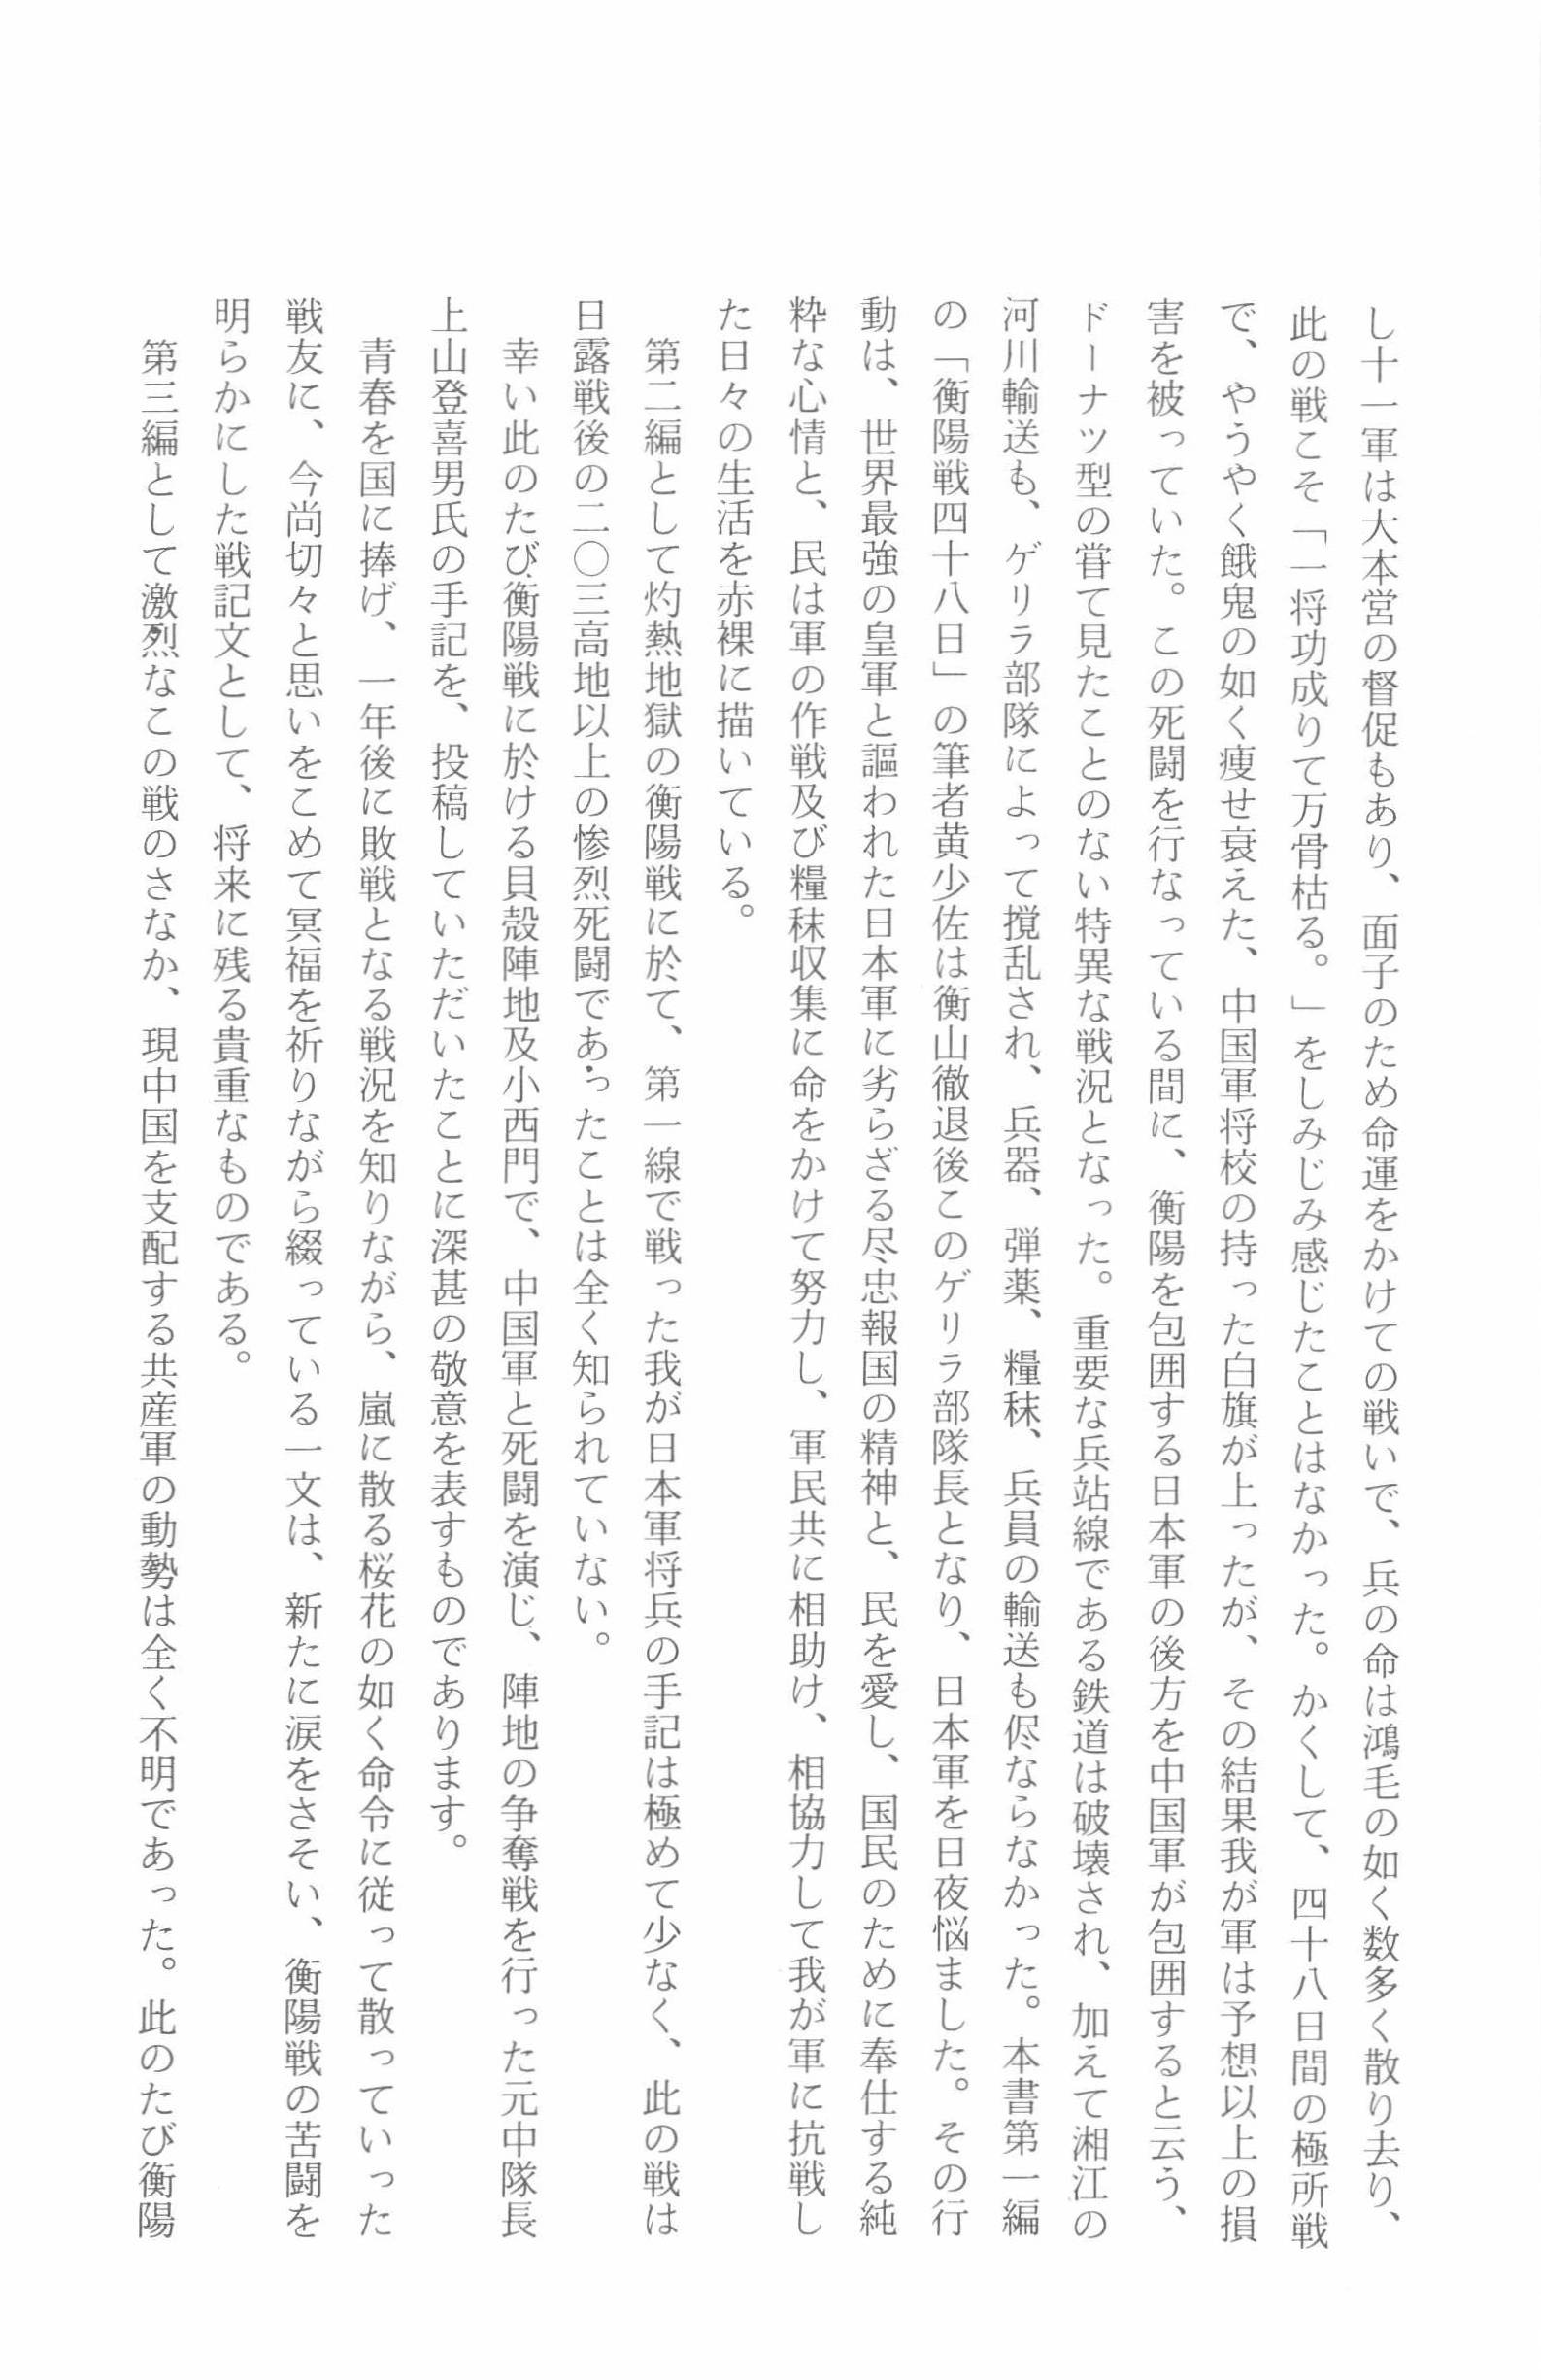 し十一軍は大本営の督促もあり、面子のため命運をかけての戦いで、兵の命は鴻毛の如く数多く散り去り、
此の戦こそ「一将功成りて万骨枯る。」をしみじみ感じたことはなかった。かくして、四十八日間の極所戦
で、やうやく餓鬼の如く痩せ衰えた、中国軍将校の持った白旗が上ったが、その結果我が軍は予想以上の損
害を被っていた。この死闘を行なっている間に、衡陽を包囲する日本軍の後方を中国軍が包囲すると云う、
ドーナツ型の甞て見たことのない特異な戦況となった。重要な兵站線である鉄道は破壊され、加えて湘江の
河川輸送も、ゲリラ部隊によって撹乱され、兵器、弾薬、糧秣、兵員の輸送も侭ならなかった。本書第一編
の「衡陽戦四十八日」の筆者黄少佐は衡山徹退後このゲリラ部隊長となり、日本軍を日夜悩ました。その行
動は、世界最強の皇軍と謳われた日本軍に劣らざる尽忠報国の精神と、民を愛し、国民のために奉仕する純
粋な心情と、民は軍の作戦及び糧秣収集に命をかけて努力し、軍民共に相助け、相協力して我が軍に抗戦し
た日々の生活を赤裸に描いている。
第二編として灼熱地獄の衡陽戦に於て、第一線で戦った我が日本軍将兵の手記は極めて少なく、此の戦は
日露戦後の二〇三高地以上の惨烈死闘であったことは全く知られていない。
幸い此のたび衡陽戦に於ける貝殻陣地及小西門で、中国軍と死闘を演じ、陣地の争奪戦を行った元中隊長
上山登喜男氏の手記を、投稿していただいたことに深甚の敬意を表すものであります。
青春を国に捧げ、一年後に敗戦となる戦況を知りながら、嵐に散る桜花の如く命令に従って散っていった
戦友に、今尚切々と思いをこめて冥福を祈りながら綴っている一文は、新たに涙をさそい、衡陽戦の苦闘を
明らかにした戦記文として、将来に残る貴重なものである。
第三編として激烈なこの戦のさなか、現中国を支配する共産軍の動勢は全く不明であった。此のたび衡陽